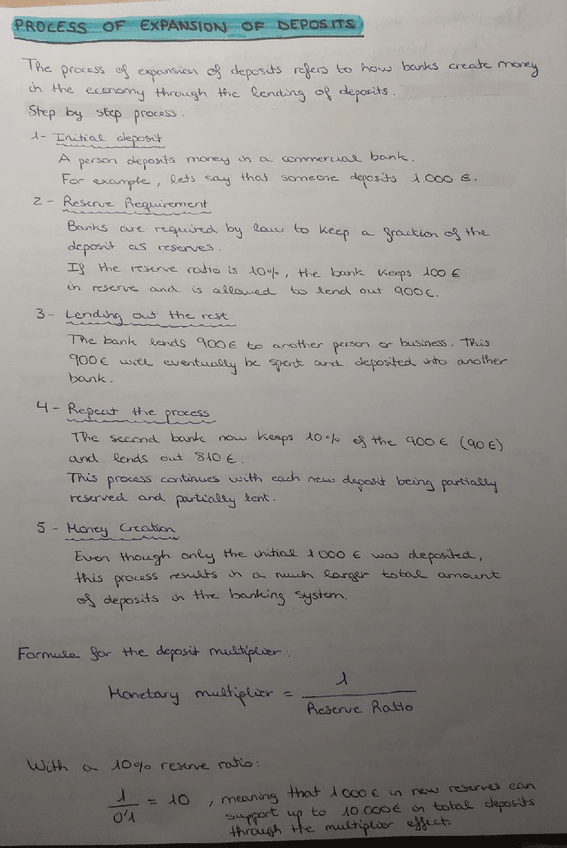 PROCESS OF EXPANSION OF DEPOSITS
The process of expansion of deposits refers to how banks create money
in the economy through the lending of deposits.
Step by step process:
1- Initial deposit
A person deposits money in a commercial bank.
For example, lets say that someone deposits 1.000 €.
2 - Reserve Requirement
Banks are required by law to keep a fraction of the
deposit as reserves.
If the reserve ratio is 10%, the bank keeps 100 €
in reserve and is allowed to lend out 900€.
3- Lending out the rest
The bank lends 900€ to another person or business. This
900€ will eventually be spent and deposited into another
bank.
4 - Repeat the process
The second bank now keeps 10% of the 900 € (90€)
and lends out 810 €.
This process continues with each new deposit being partially
reserved and partially lent.
5 - Money Creation
Even though only the initial 1000 € was deposited,
this process results in a much larger total amount
of deposits in the banking system.
Formula for the deposit multiplier:
Monetary multiplier = 1 / Reserve Ratio
With a 10% reserve ratio:
1 / 0'1 = 10 , meaning that 1000€ in new reserves can
support up to 10.000€ in total deposits
through the multiplier effect.